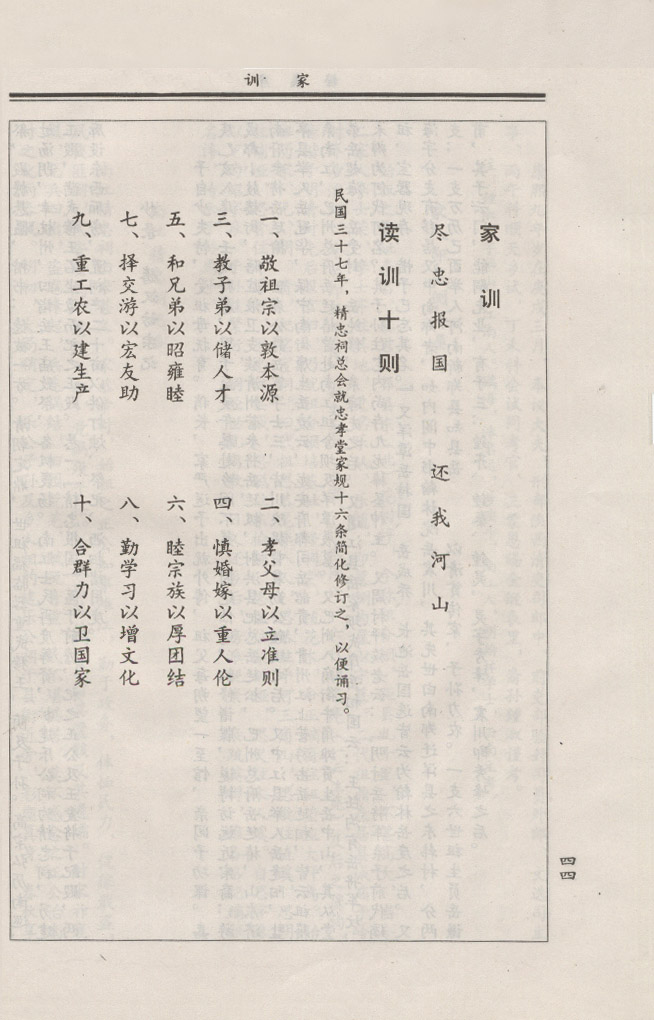 家训
家训
尽忠报国 还我河山
读训十则
民国三十七年，精忠祠总会就忠孝堂家规十六条简化修订之，以便诵习。
一、敬祖宗以敦本源
二、孝父母以立准则
三、教子弟以储人才
四、慎婚嫁以重人伦
五、和兄弟以昭雍睦
六、睦宗族以厚团结
七、择交游以宏友助
八、勤学习以增文化
九、重工农以建生产
十、合群力以卫国家
四四